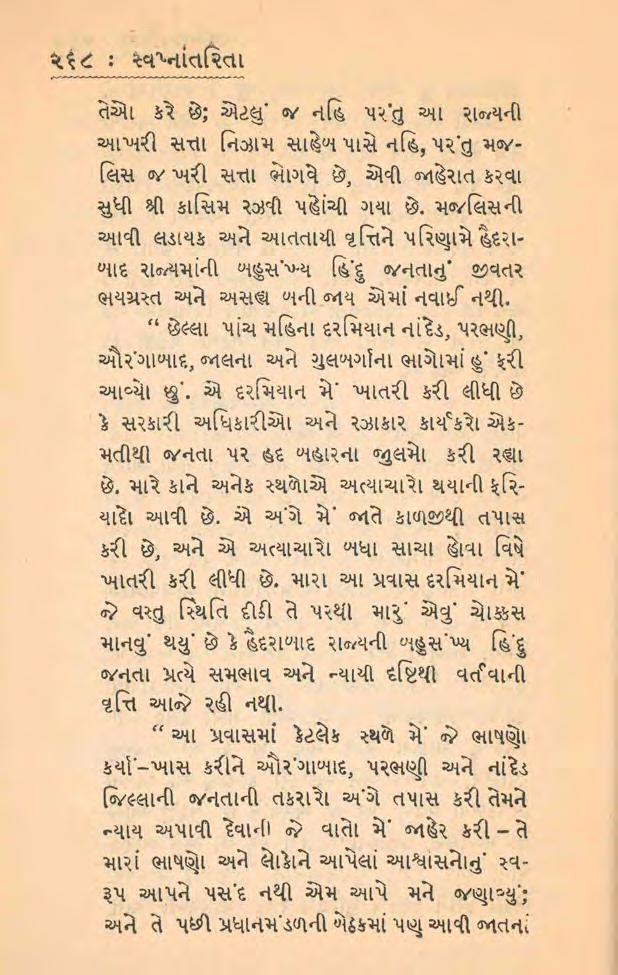 ૨૬૮ : સ્વપ્નાંતરિતા
તેઓ કરે છે; એટલું જ નહિ પરંતુ આ રાજ્યની
આખરી સત્તા નિઝામ સાહેબ પાસે નહિ, પરંતુ મજ-
લિસ જ ખરી સત્તા ભોગવે છે, એવી જાહેરાત કરવા
સુધી શ્રી કાસિમ રઝવી પહોંચી ગયા છે. મજલિસની
આવી લડાયક અને આતતાયી વૃત્તિને પરિણામે હૈદરા-
બાદ રાજ્યમાંની બહુસંખ્ય હિંદુ જનતાનું જીવતર
ભયગ્રસ્ત અને અસહ્ય બની જાય એમાં નવાઈ નથી.
“ છેલ્લા પાંચ મહિના દરમિયાન નાંદેડ, પરભણી,
ઔરંગાબાદ, જાલના અને ગુલબર્ગાના ભાગોમાં હું ફરી
આવ્યો છું. એ દરમિયાન મેં ખાતરી કરી લીધી છે
કે સરકારી અધિકારીઓ અને રઝાકાર કાર્યકરો એક-
મતીથી જનતા પર હદ બહારના જુલમો કરી રહ્યા
છે. મારે કાને અનેક સ્થળોએ અત્યાચારો થયાની ફરિ-
યાદો આવી છે. એ અંગે મેં જાતે કાળજીથી તપાસ
કરી છે, અને એ અત્યાચારો બધા સાચા હોવા વિષે
ખાતરી કરી લીધી છે. મારા આ પ્રવાસ દરમિયાન મેં
જે વસ્તુ સ્થિતિ દીઠી તે પરથી મારું એવું ચોક્કસ
માનવું થયું છે કે હૈદરાબાદ રાજ્યની બહુસંખ્ય હિંદુ
જનતા પ્રત્યે સમભાવ અને ન્યાયી દષ્ટિથી વર્તવાની
વૃત્તિ આજે રહી નથી.
“ આ પ્રવાસમાં કેટલેક સ્થળે મેં જે ભાષણો
કર્યાં–ખાસ કરીને ઔરંગાબાદ, પરભણી અને નાંદેડ
જિલ્લાની જનતાની તકરારો અંગે તપાસ કરી તેમને
ન્યાય અપાવી દેવાની જે વાતો મેં જાહેર કરી – તે
મારાં ભાષણો અને લોકોને આપેલાં આશ્વાસનોનું સ્વ-
રૂપ આપને પસંદ નથી એમ આપે મને જણાવ્યું;
અને તે પછી પ્રધાનમંડળની બેઠકમાં પણ આવી જાતનાં